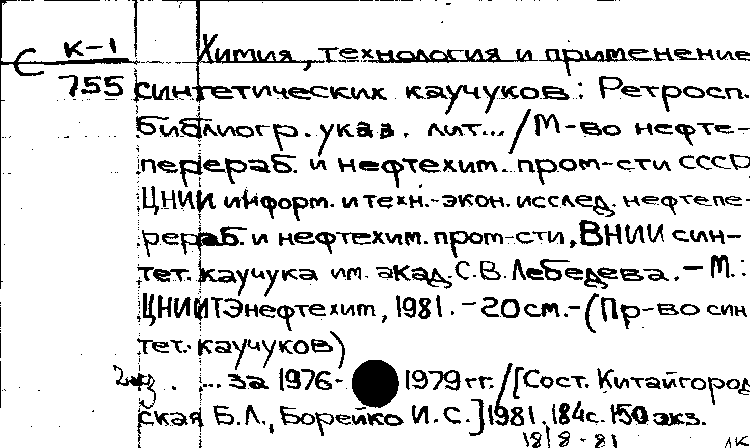 К-1 Химия, технология и применение
С 755 синтетических каучуков: Ретросп.
библиогр. указ. лит... / М-во нефте-
перераб. и нефтехим. пром-сти СССР,
ЦНИИ информ. и техн.-экон. исслед. нефтепе-
рераб. и нефтехим. пром-сти, ВНИИ син-
тет. каучука им. акад. С.В. Лебедева. – М.:
ЦНИИТЭнефтехим, 1981. – 20 см. – (Пр-во син
тет. каучуков)
2экз. ... за 1976- 1979 гг. / [Сост. Китайгород
ская Б.Л., Борейко И.С.] 1981. 184с. 150 экз.
1818 - 81